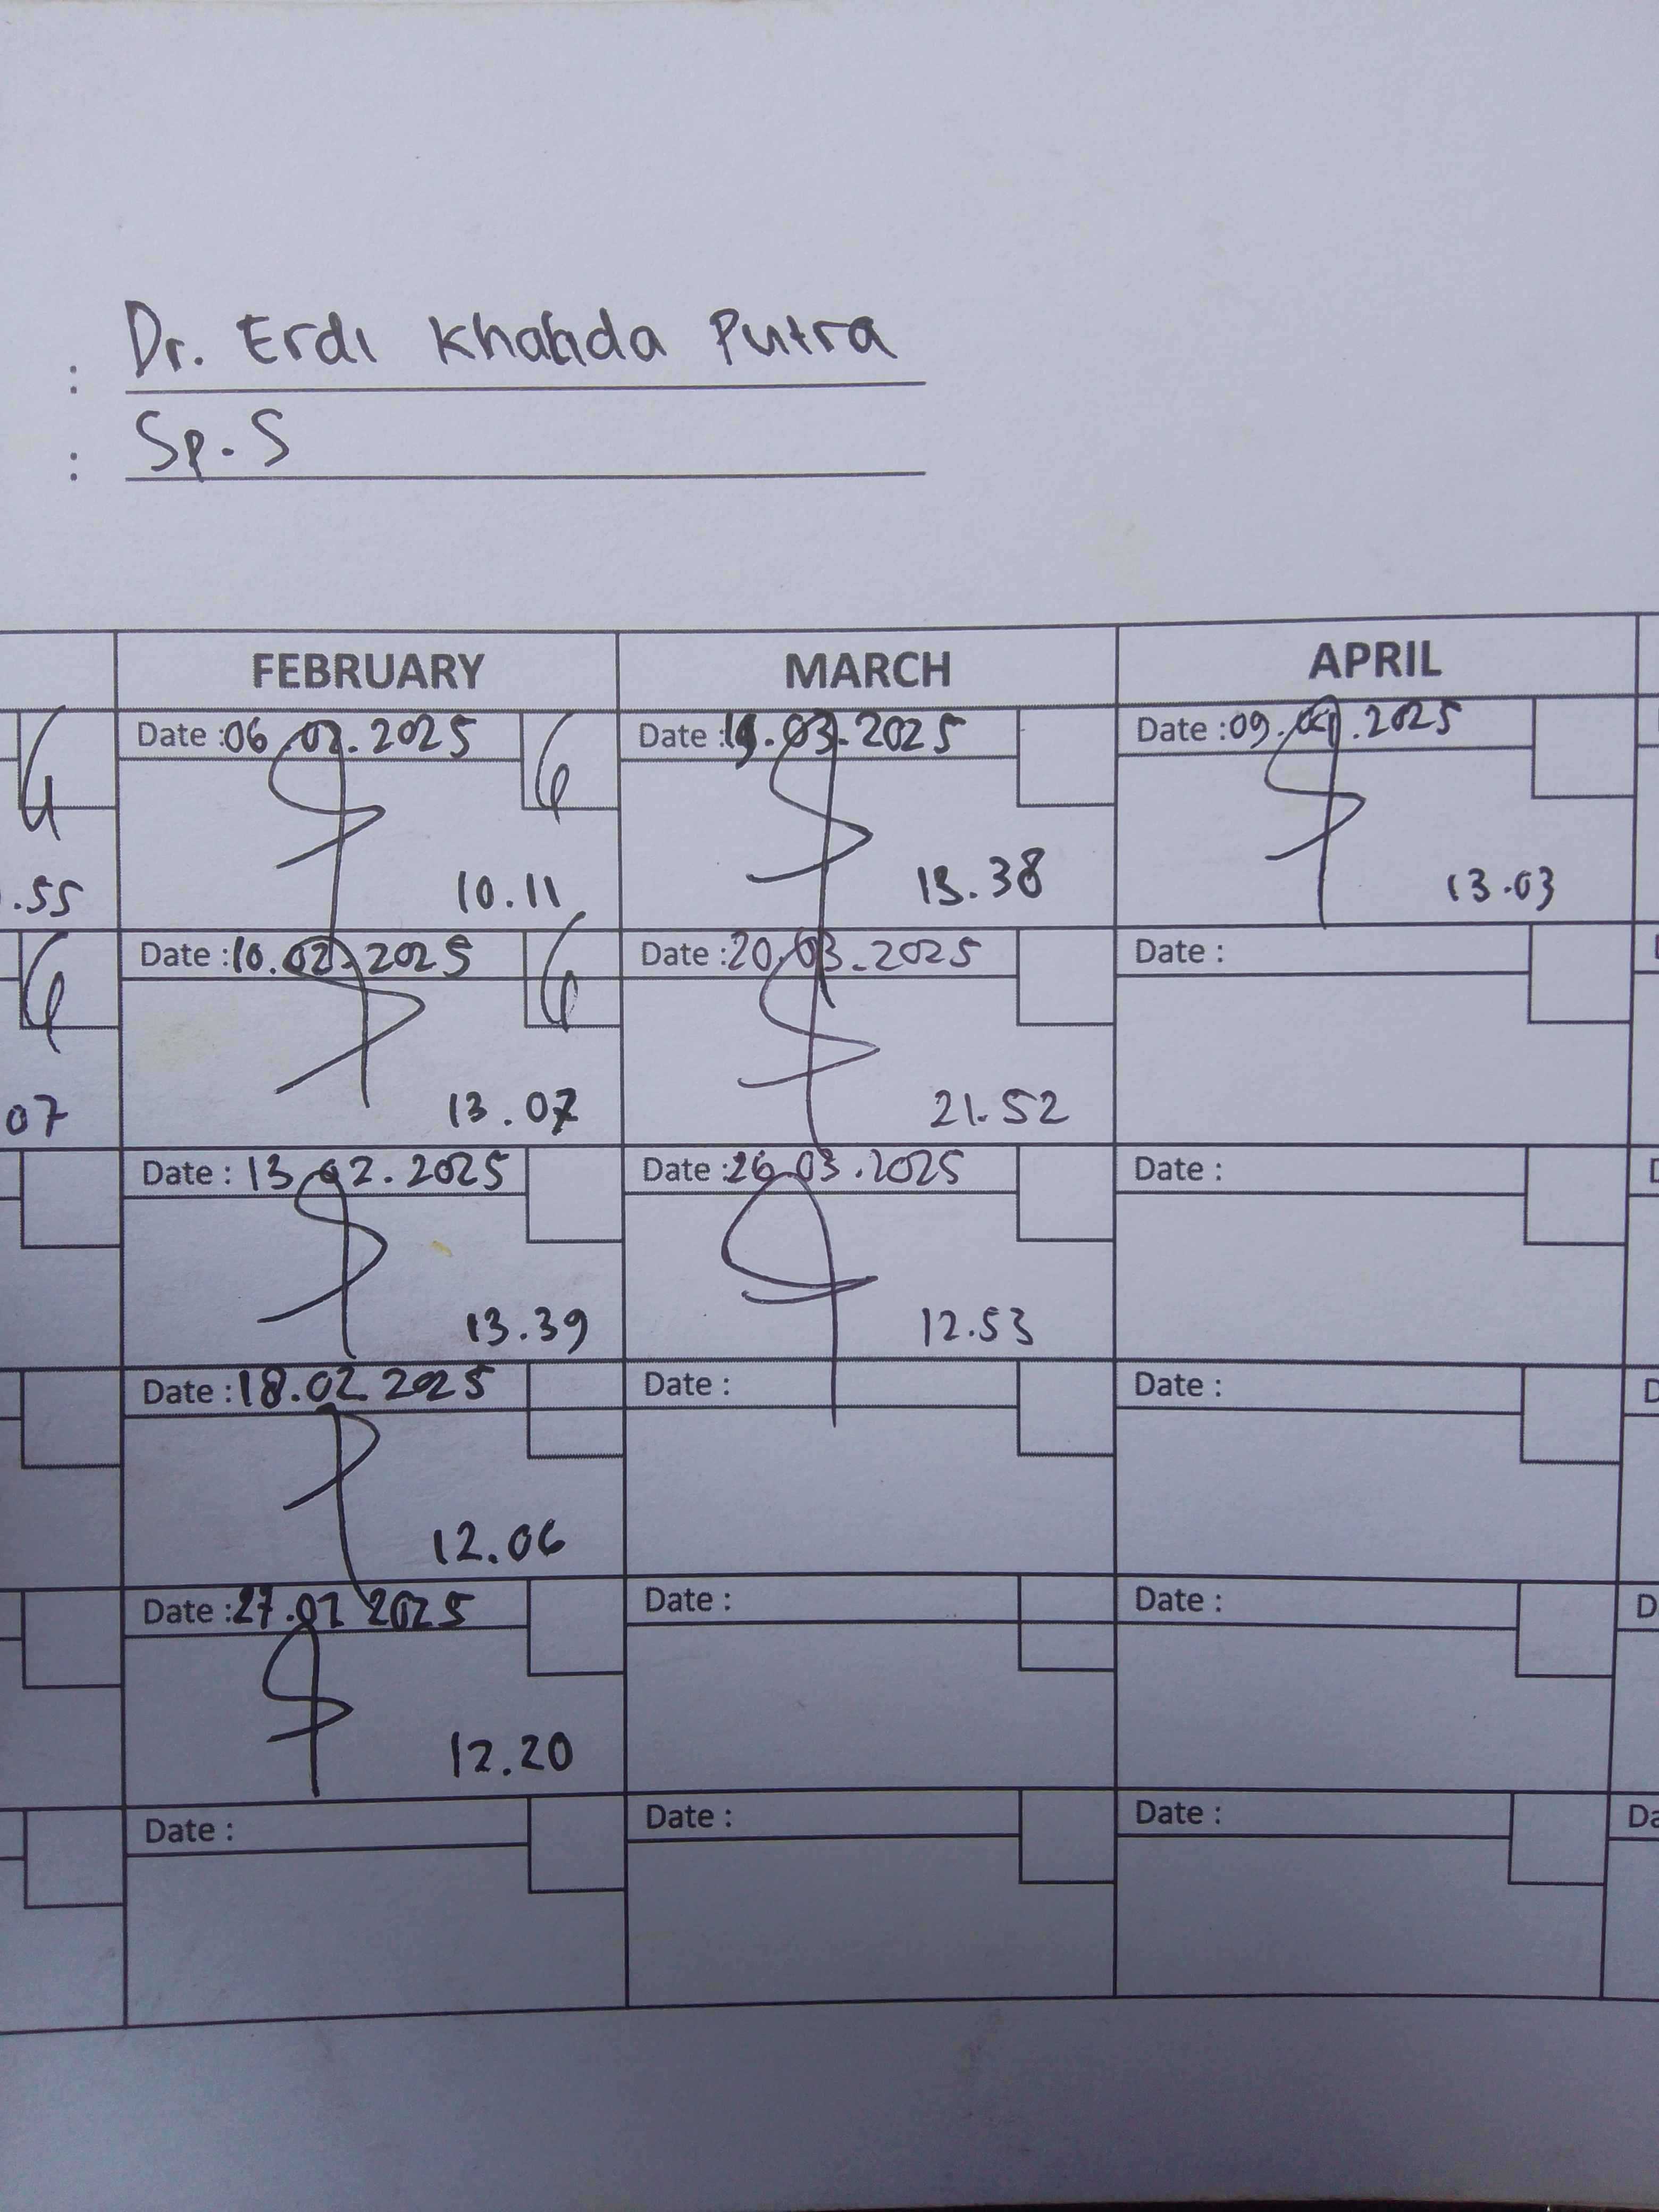 : Dr. Erdi Khalida Putra
: Sp. S
FEBRUARY MARCH APRIL
Date : 06.02.2025 Date : .03.2025 Date : 09.04.2025
.55 10.11 13.38 13.03
Date : 10.02.2025 Date : 20.03.2025 Date :
07 13.07 21.52
Date : 13.02.2025 Date : 26.03.2025 Date :
13.39 12.53
Date : 18.02.2025 Date : Date :
12.06
Date : 27.02.2025 Date : Date :
12.20
Date : Date : Date :